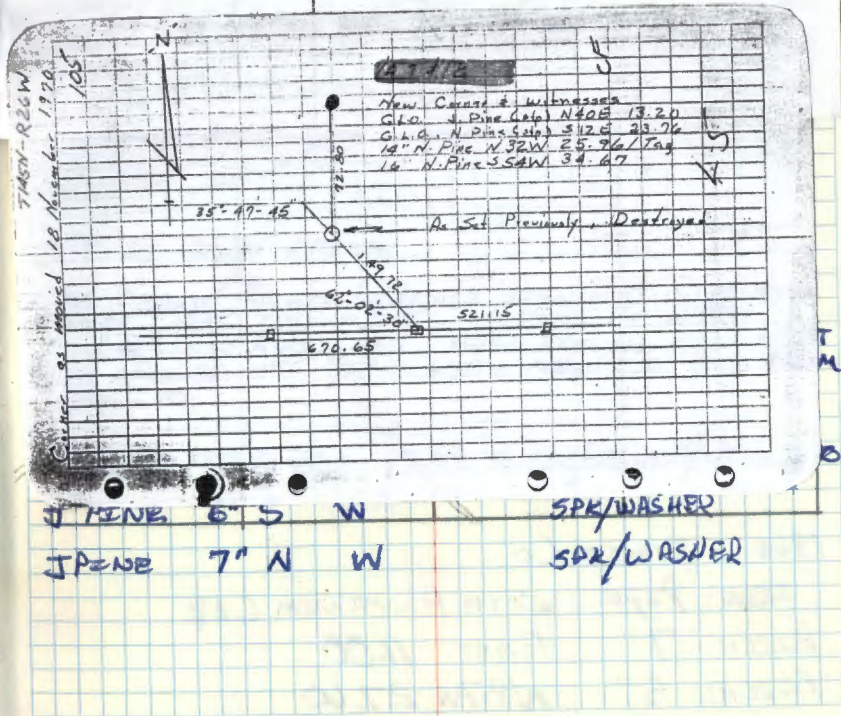 T45N-R26W
Corner as moved 18 November 1970
105
N
New Corner & Witnesses
G.L.O. J. Pine (stp) N40E 13.20
G.L.O. N Pine (stp) S12E 23.76
14" N. Pine N32W 25.96/Tag
16 N. Pine S54W 34.67
72.80
35°-47'-45"
As Set Previously, Destroyed
149.72
62°-02'-30"
521.15
670.65
J PINE 6" S W SPK/WASHER
J PINE 7" N W SPK/WASHER